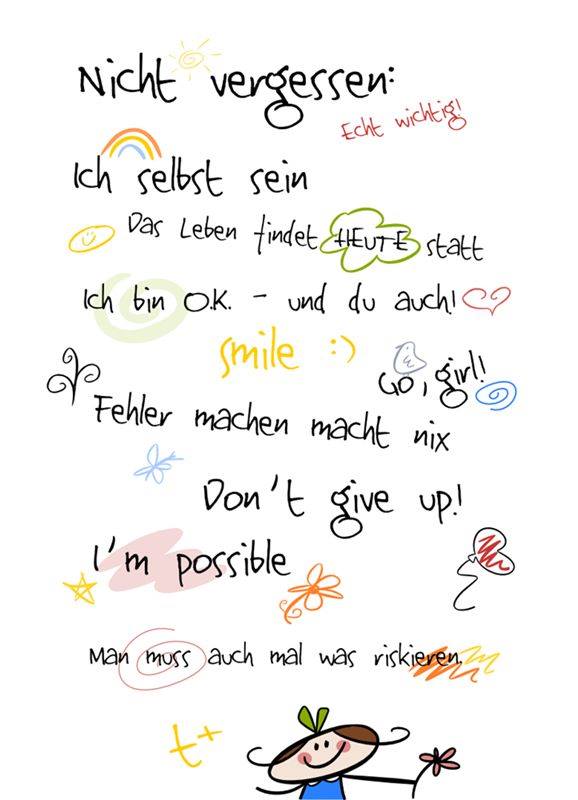 Nicht vergessen:
Echt wichtig!
Ich selbst sein
Das Leben findet HEUTE statt
Ich bin O.K. - und du auch!
smile :)
Go, girl!
Fehler machen macht nix
Don't give up!
I'm possible
Man muss auch mal was riskieren.
t+